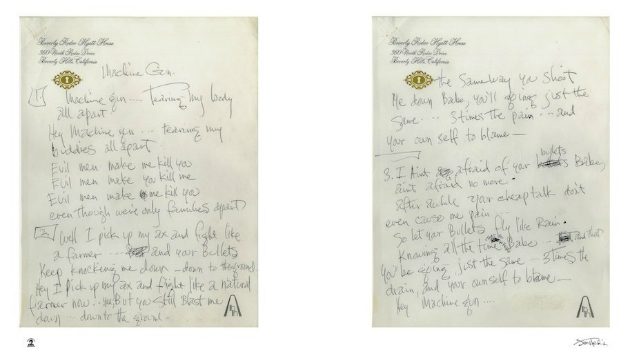 Beverly Rodeo Hyatt House
360 North Rodeo Drive
Beverly Hills, California
Machine Gun
1 Machine gun ... Tearing my body
all apart
Hey Machine gun ... tearing my
buddies all apart
Evil men make me kill you
Evil men make you kill me
Evil men make me kill you
even though we're only families apart
2 Well I pick up my ax and fight like
a farmer ... and your Bullets
Keep knocking me down - down to the ground
Hey I pick up my ax and fight like a natural
farmer now ... But you still Blast me
down ... down to the ground -
Beverly Rodeo Hyatt House
360 North Rodeo Drive
Beverly Hills, California
the Same way you shoot
Me down Babe, you'll be going just the
Same ... 3 times the pain ... and
your own self to blame -
3. I Aint afraid of your bullets Babe,
aint afraid no more.
After awhile your cheap talk dont
even cause me pain ...
So let your Bullets fly like Rain.
Knowing all the time Babe ... and that
You'll be going just the same - 3 times the
pain, and your own self to blame -
Hey Machine gun ...